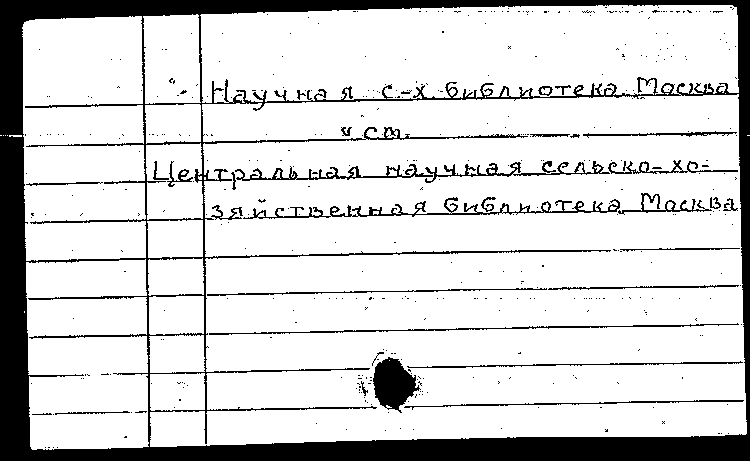 Научная с-х библиотека Москва
и ст.
Центральная научная сельско-хо-
зяйственная библиотека Москва